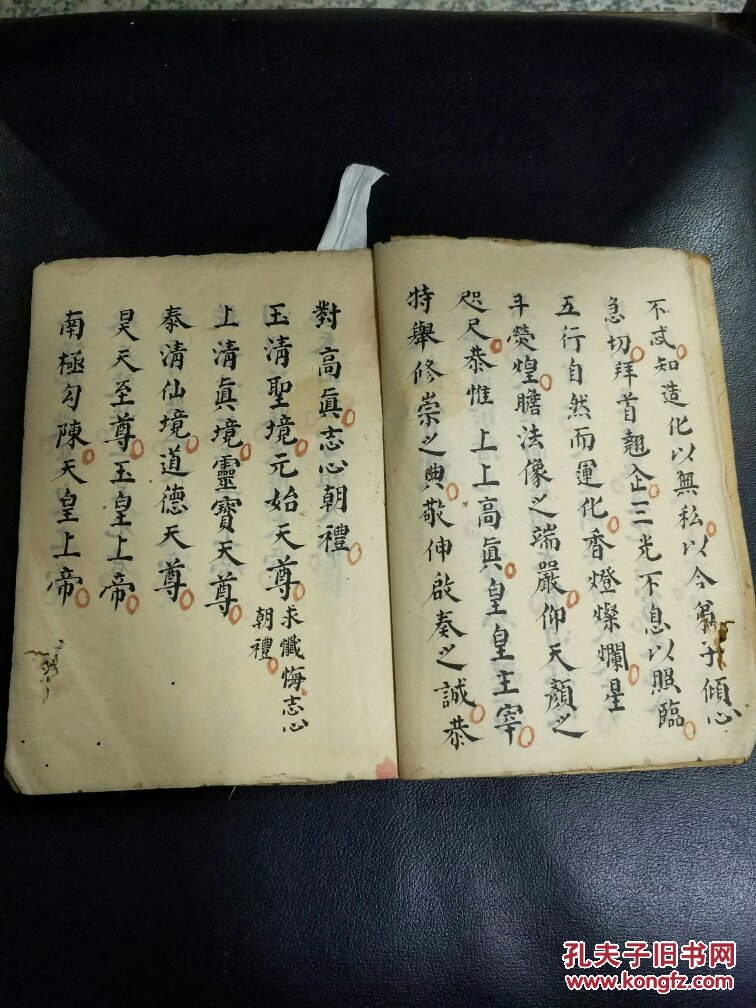 不忒知造化以無私以今 于傾心
急切拜首翹企三光不息以照臨
五行自然而運化香燈燦爛星
斗熒煌瞻法像之端嚴仰天顏之
咫尺恭惟上上高眞皇皇主宰
特舉修崇之典敬伸啟奏之誠恭
對高眞志心朝禮
玉清聖境元始天尊求懺悔志心朝禮
上清眞境靈寶天尊
泰清仙境道德天尊
昊天至尊玉皇上帝
南極勾陳天皇上帝
孔夫子旧书网
www.kongfz.com